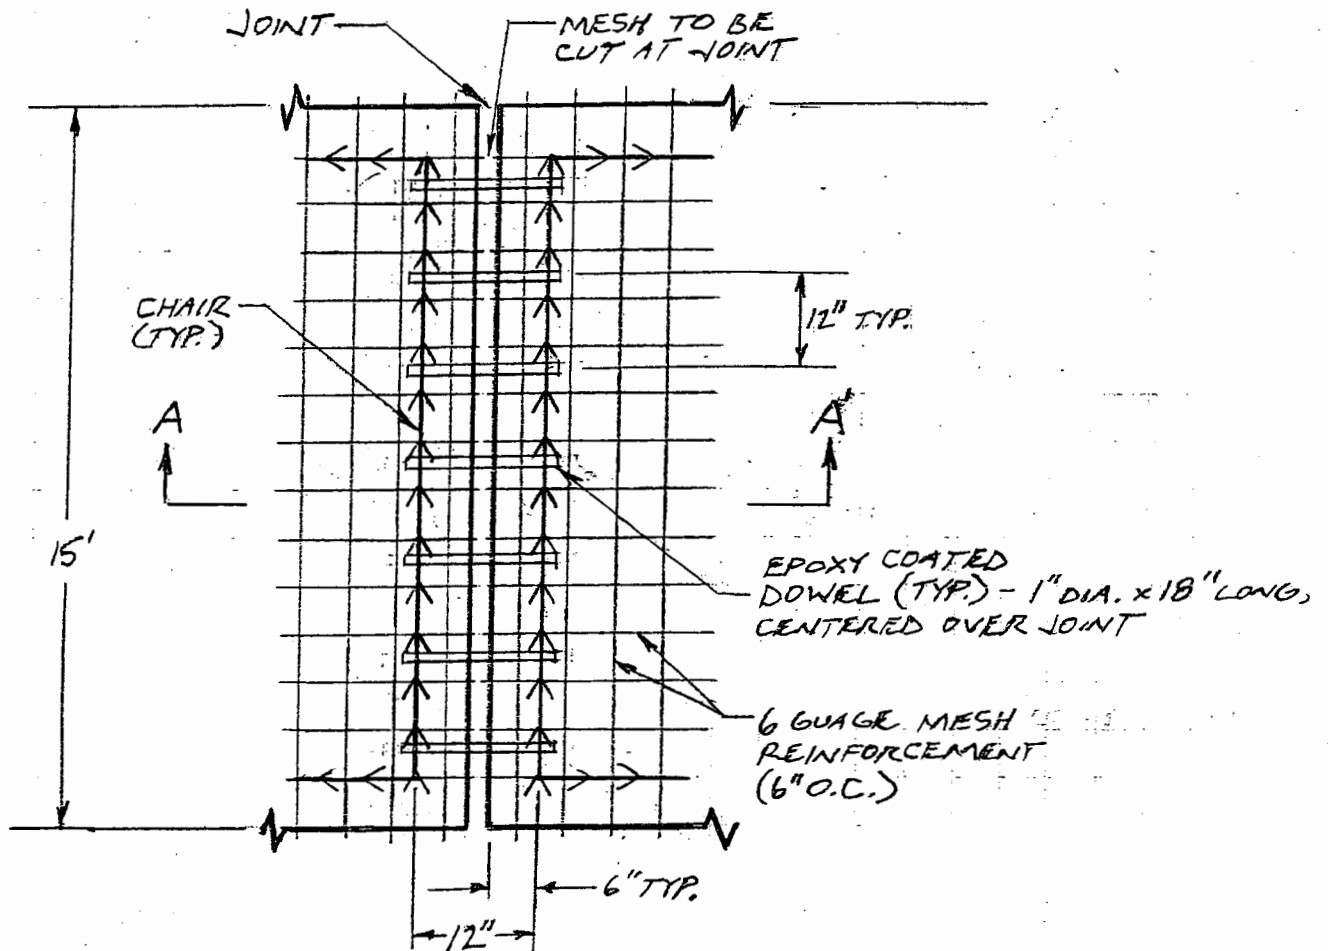 JOINT
MESH TO BE
CUT AT JOINT
CHAIR
(TYP.)
12" TYP.
A
A'
15'
EPOXY COATED
DOWEL (TYP.) - 1" DIA. x 18" LONG,
CENTERED OVER JOINT
6 GUAGE MESH
REINFORCEMENT
(6" O.C.)
6" TYP.
12"